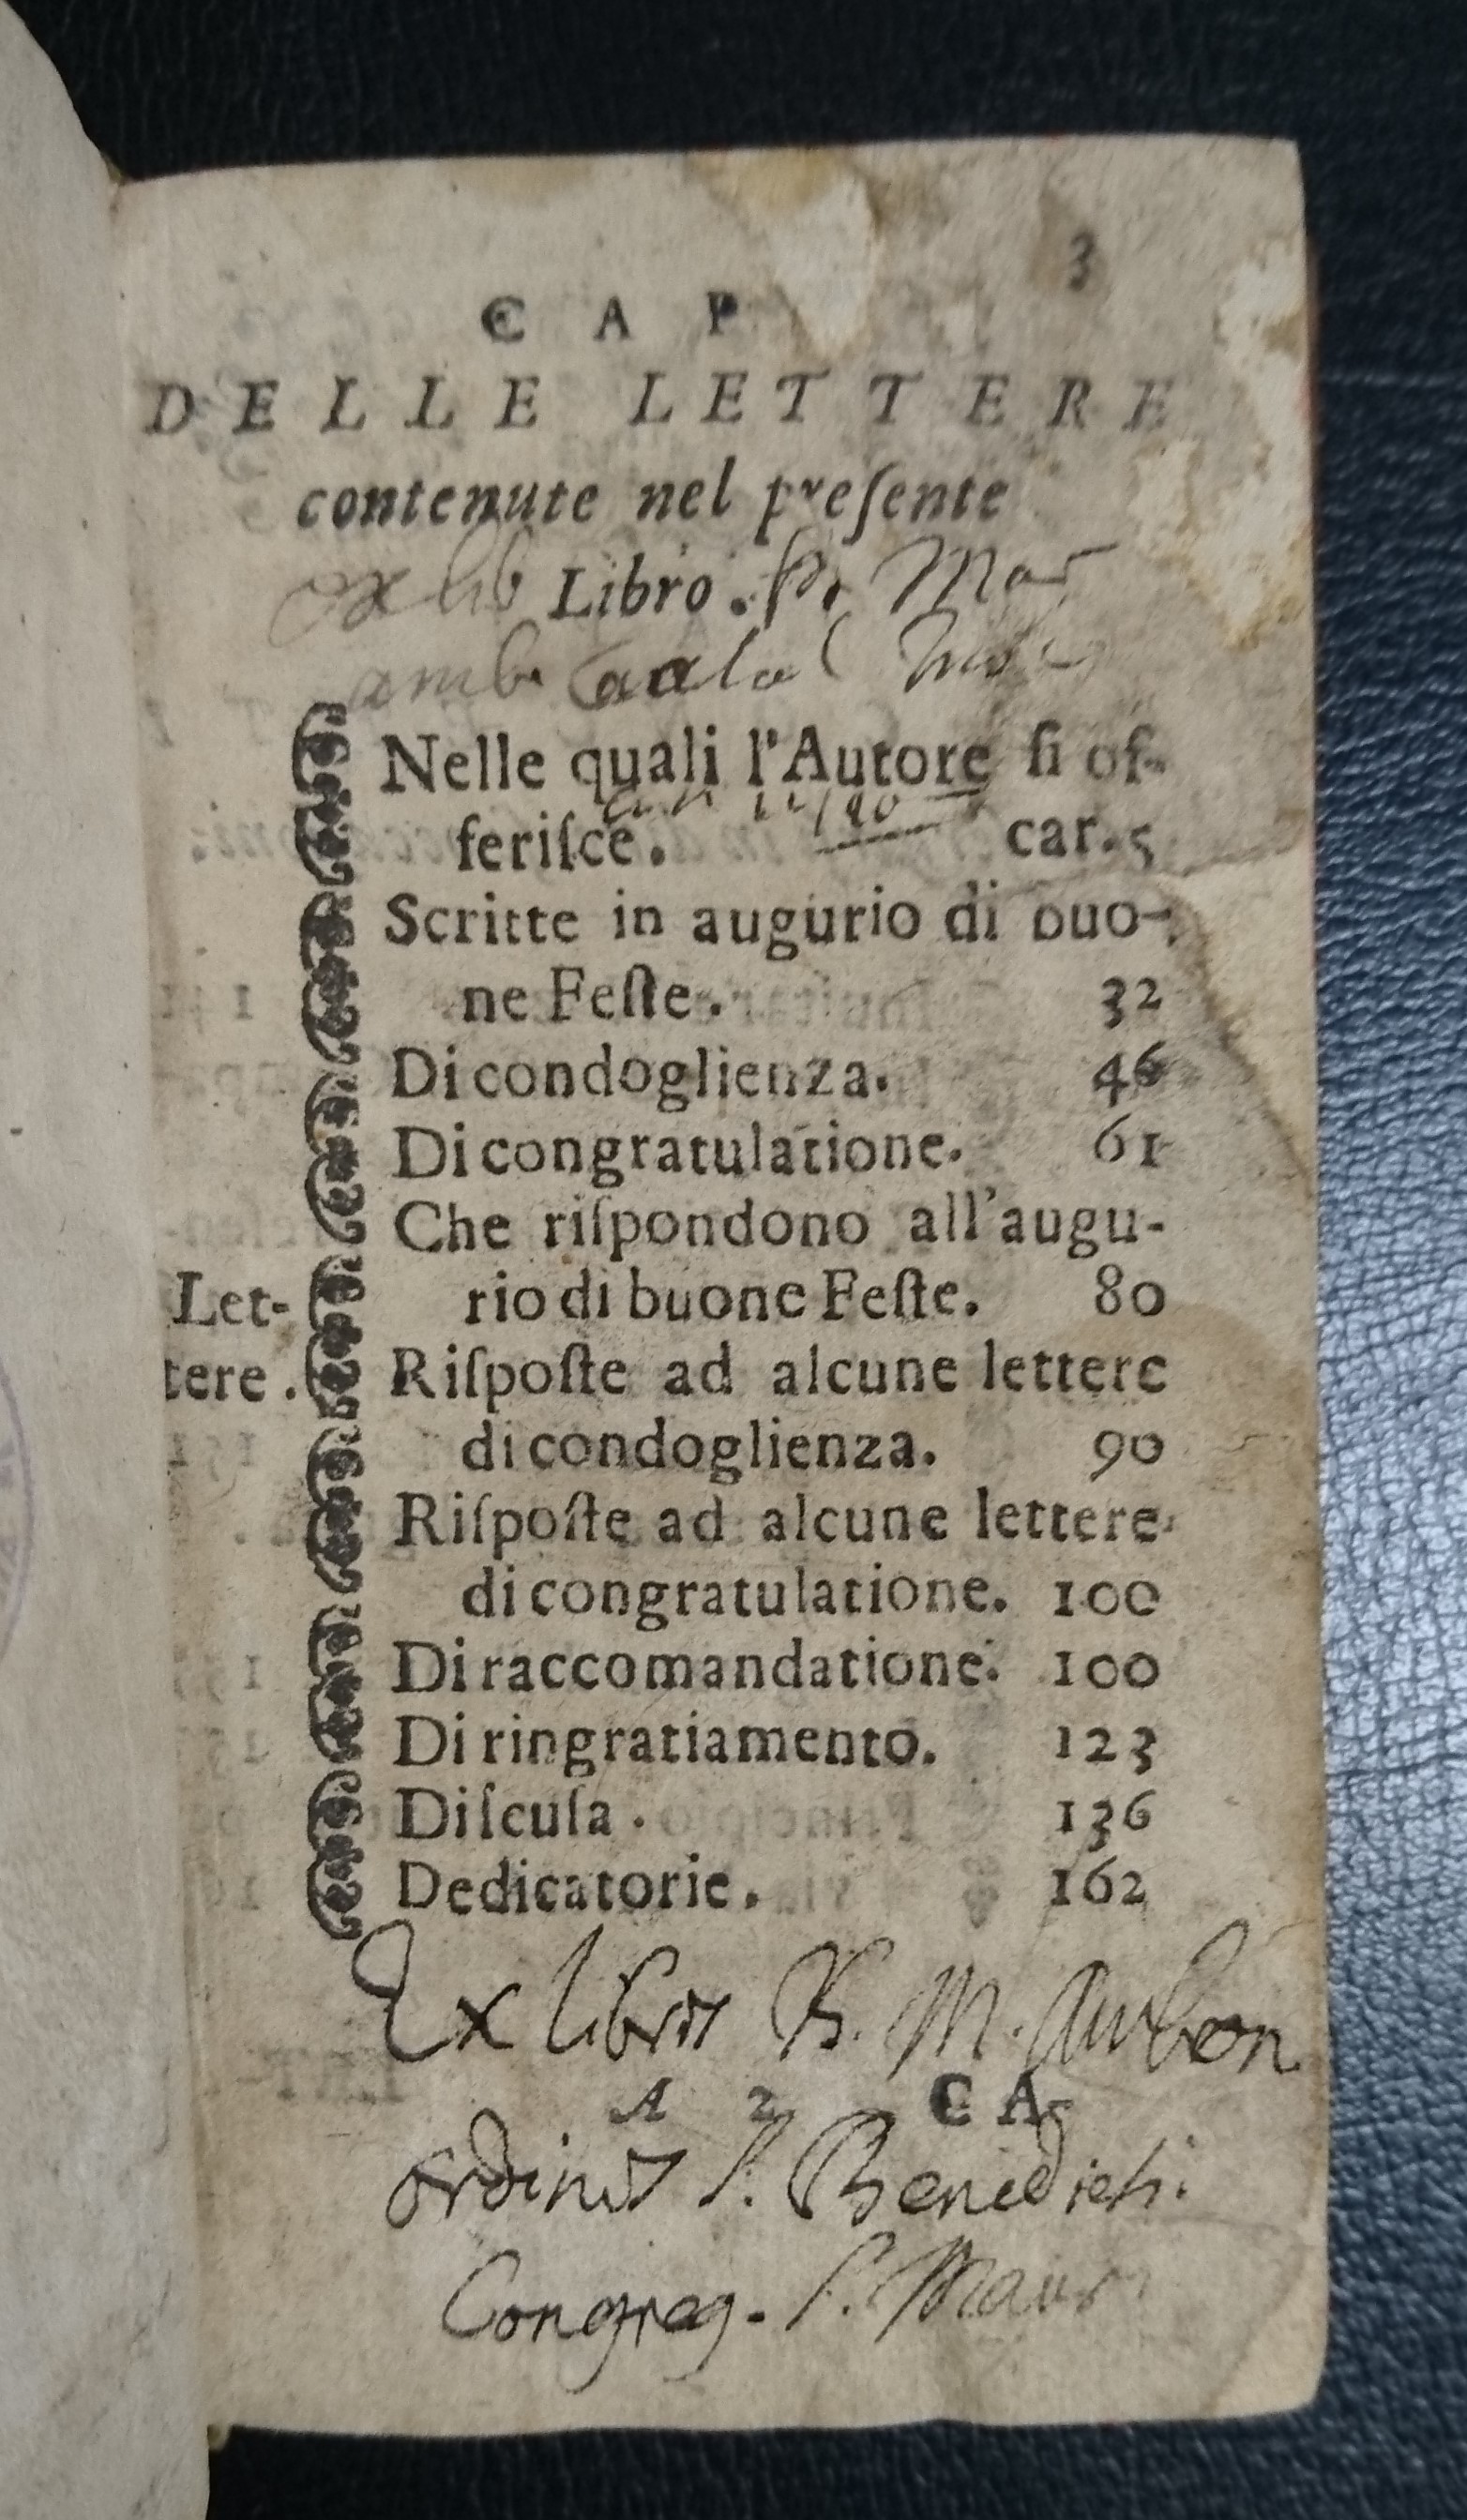 3
CAP
DELLE LETTERE
contenute nel preſente
ex lib Libro.
Nelle quali l'Autore ſi of-
feriſce. car. 5
Scritte in augurio di buo-
ne Feſte. 32
Di condoglienza. 46
Di congratulatione. 61
Che riſpondono all'augu-
rio di buone Feſte. 80
Riſpoſte ad alcune lettere
di condoglienza. 90
Riſpoſte ad alcune lettere
di congratulatione. 100
Di raccomandatione. 100
Di ringratiamento. 123
Di ſcuſa. 136
Dedicatorie. 162
Let-
tere.
Ex libris M.
A 2 CA-
ordinis S. Benedicti.
Congreg. S. Mauri